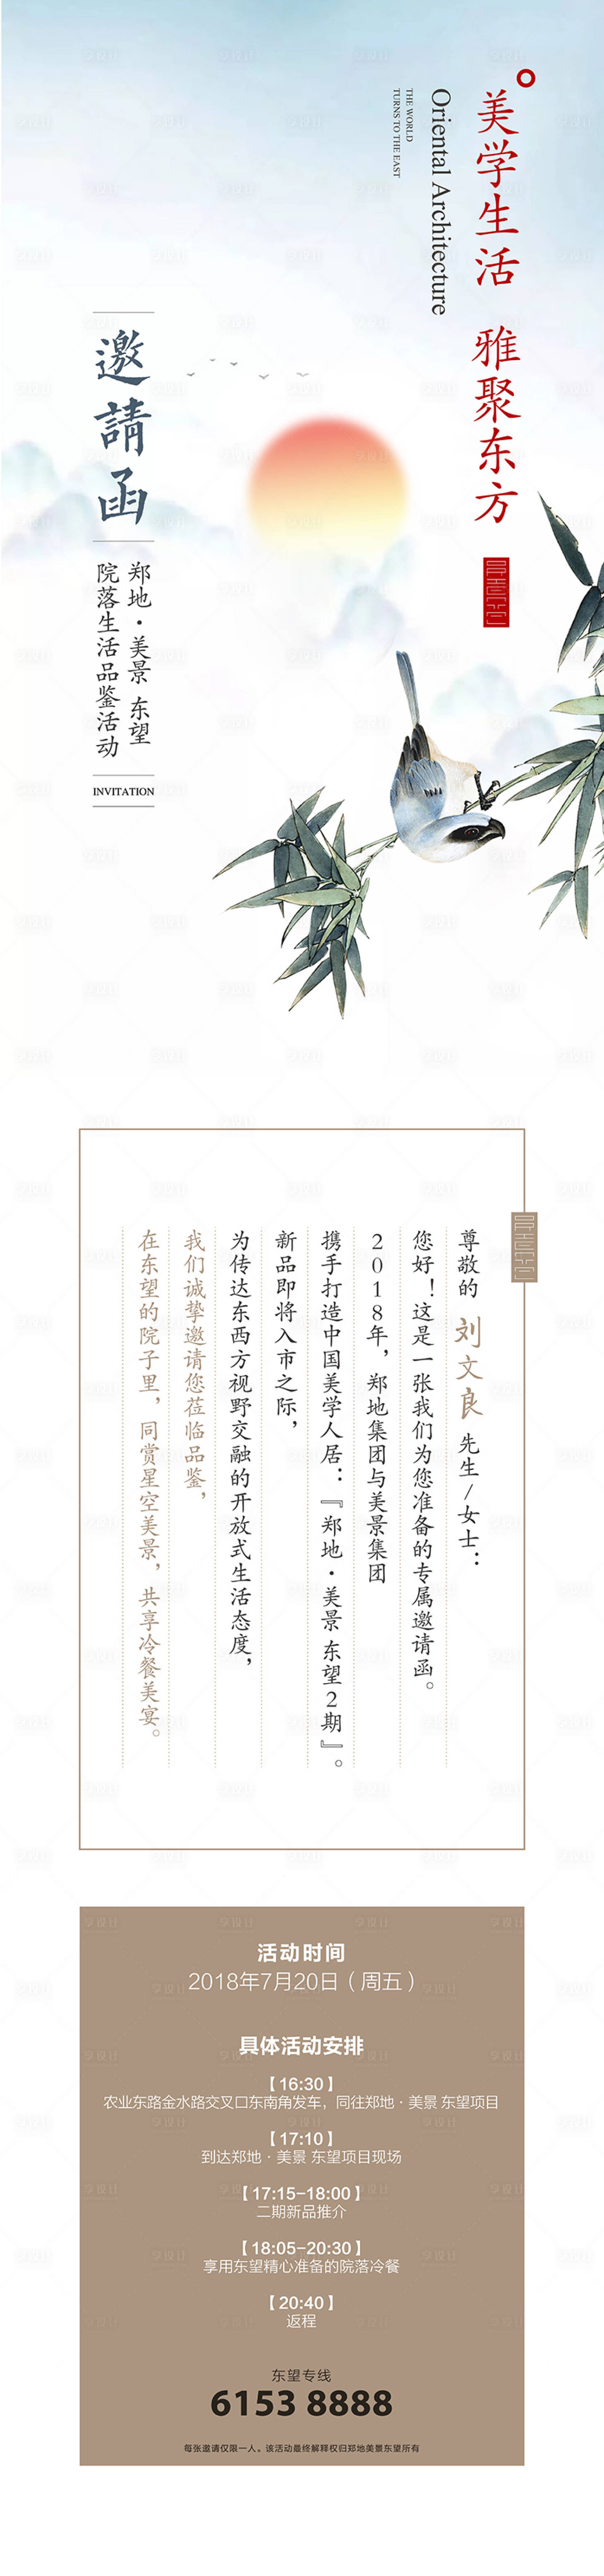 美学生活 雅聚东方
Oriental Architecture
THE WORLD
TURNS TO THE EAST
邀請函
郑地·美景 东望
院落生活品鉴活动
INVITATION
尊敬的 刘文良 先生/女士：
您好！这是一张我们为您准备的专属邀请函。
2018年，郑地集团与美景集团
携手打造中国美学人居：『郑地·美景 东望2期』。
新品即将入市之际，
为传达东西方视野交融的开放式生活态度，
我们诚挚邀请您莅临品鉴，
在东望的院子里，同赏星空美景，共享冷餐美宴。
活动时间
2018年7月20日（周五）
具体活动安排
【16:30】
农业东路金水路交叉口东南角发车，同往郑地·美景 东望项目
【17:10】
到达郑地·美景 东望项目现场
【17:15-18:00】
二期新品推介
【18:05-20:30】
享用东望精心准备的院落冷餐
【20:40】
返程
东望专线
6153 8888
每张邀请仅限一人。该活动最终解释权归郑地美景东望所有
享设计